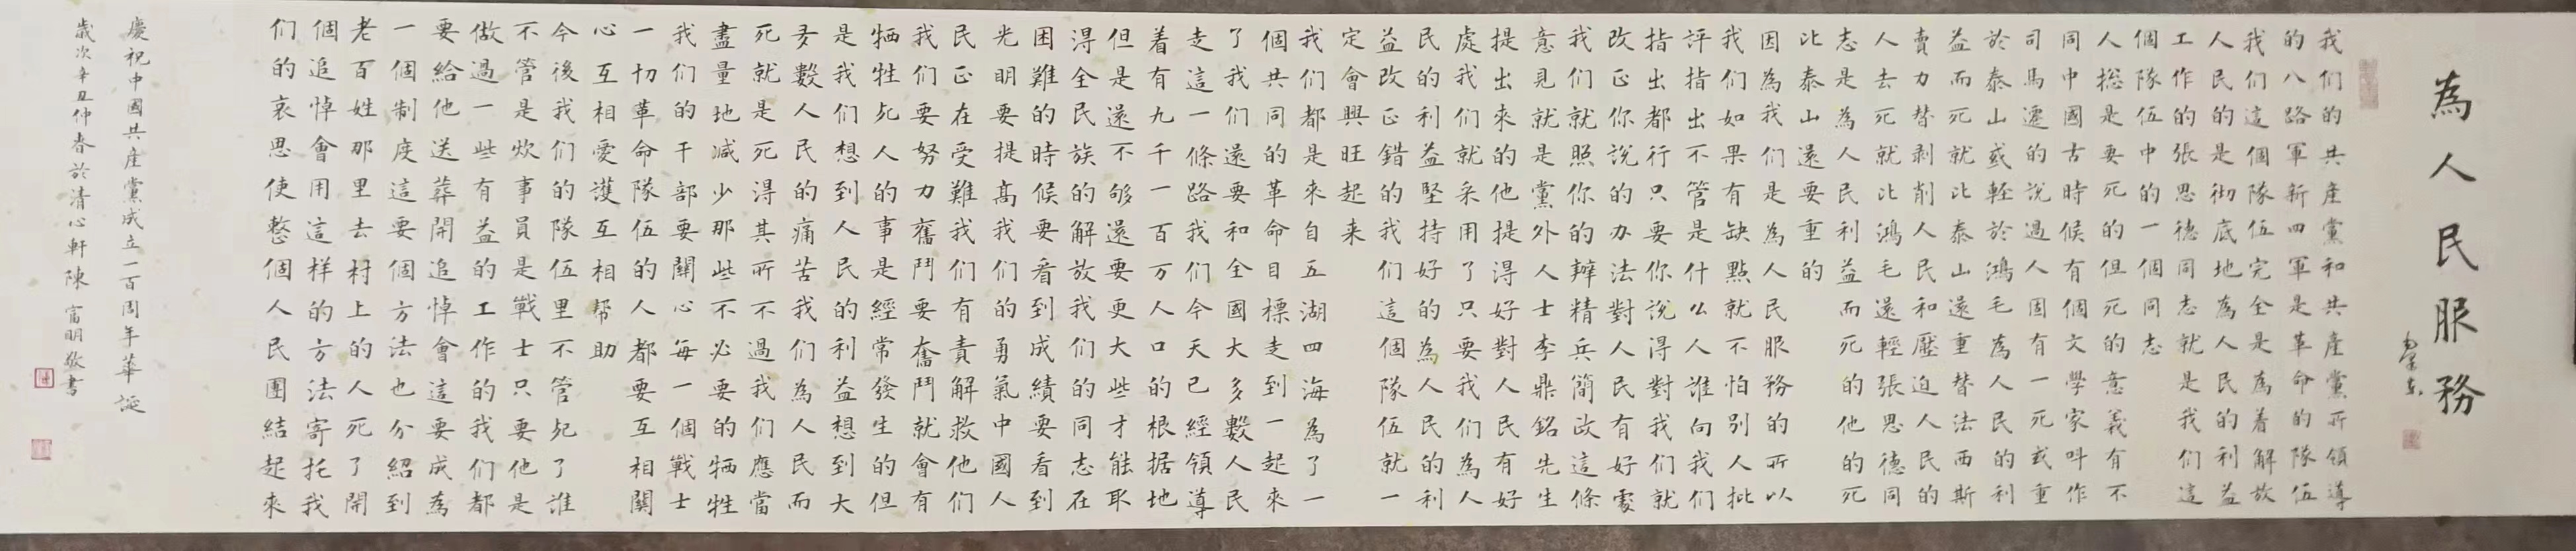 為人民服務
我们的共産黨和共産黨所領導
的八路軍新四軍是革命的隊伍
我们這個隊伍完全是為着解放
人民的是彻底地為人民的利益
工作的張思德同志就是我们這
個隊伍中的一個同志
人総是要死的但死的意義有不
同中國古時候有個文學家叫作
司馬遷的說過人固有一死或重
於泰山或輕於鴻毛為人民的利
益而死就比泰山還重替法西斯
賣力替剥削人民和壓迫人民的
人去死就比鴻毛還輕張思德同
志是為人民利益而死的他的死
比泰山還要重的
因為我们是為人民服務的所以
我们如果有缺點就不怕别人批
評指出不管是什么人谁向我们
指出都行只要你說得對我们就
改正你說的办法對人民有好處
我们就照你的辦精兵簡政這條
意見就是黨外人士李鼎銘先生
提出來的他提得好對人民有好
處我们就采用了只要我们為人
民的利益堅持好的為人民的利
益改正錯的我们這個隊伍就一
定會興旺起来
我们都是來自五湖四海為了一
個共同的革命目標走到一起來
了我们還要和全國大多數人民
走這一條路我们今天已經領導
着有九千一百万人口的根据地
但是還不够還要更大些才能取
得全民族的解放我们的同志在
困難的時候要看到成績要看到
光明要提高我们的勇氣中國人
民正在受難我们有責解救他们
我们要努力奮鬥要奮鬥就會有
牺牲死人的事是經常發生的但
是我们想到人民的利益想到大
多數人民的痛苦我们為人民而
死就是死得其所不過我们應當
盡量地减少那些不必要的牺牲
我们的干部要關心每一個戰士
一切革命隊伍的人都要互相關
心互相愛護互相帮助
今後我们的隊伍里不管死了谁
不管是炊事員是戰士只要他是
做過一些有益的工作的我们都
要給他送葬開追悼會這要成為
一個制度這要個方法也介紹到
老百姓那里去村上的人死了開
個追悼會用這样的方法寄托我
们的哀思使整個人民團結起來
慶祝中國共産黨成立一百周年華誕
歲次辛丑仲春於清心軒陳富明敬書